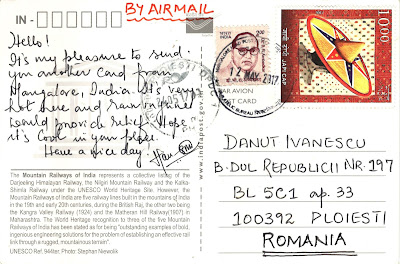 IN -
BY AIRMAIL
Hello!
It's my pleasure to send
you another card from
Mangalore, India. It's very
hot here and rain
would provide relief. Hope
it's cool in your place.
Have a nice day.
The Mountain Railways of India represents a collective listing of the
Darjeeling Himalayan Railway, the Nilgiri Mountain Railway and the Kalka-
Shimla Railway under the UNESCO World Heritage Site. However, the
Mountain Railways of India are five railway lines built in the mountains of India
in the 19th and early 20th centuries, during the British Raj, the other two being
the Kangra Valley Railway (1924) and the Matheran Hill Railway(1907) in
Maharashtra. The World Heritage recognition to three of the five Mountain
Railways of India has been stated as for being "outstanding examples of bold,
ingenious engineering solutions for the problem of establishing an effective rail
link through a rugged, mountainous terrain".
UNESCO Ref: 944ter. Photo: Stephen Niewolik
www.indiapost.gov.in
PAR AVION
POST CARD
12 MAY 2017
1000
DANUT IVANESCU
B-DUL REPUBLICII NR. 197
BL 5C1 ap. 33
100392 PLOIESTI
ROMANIA